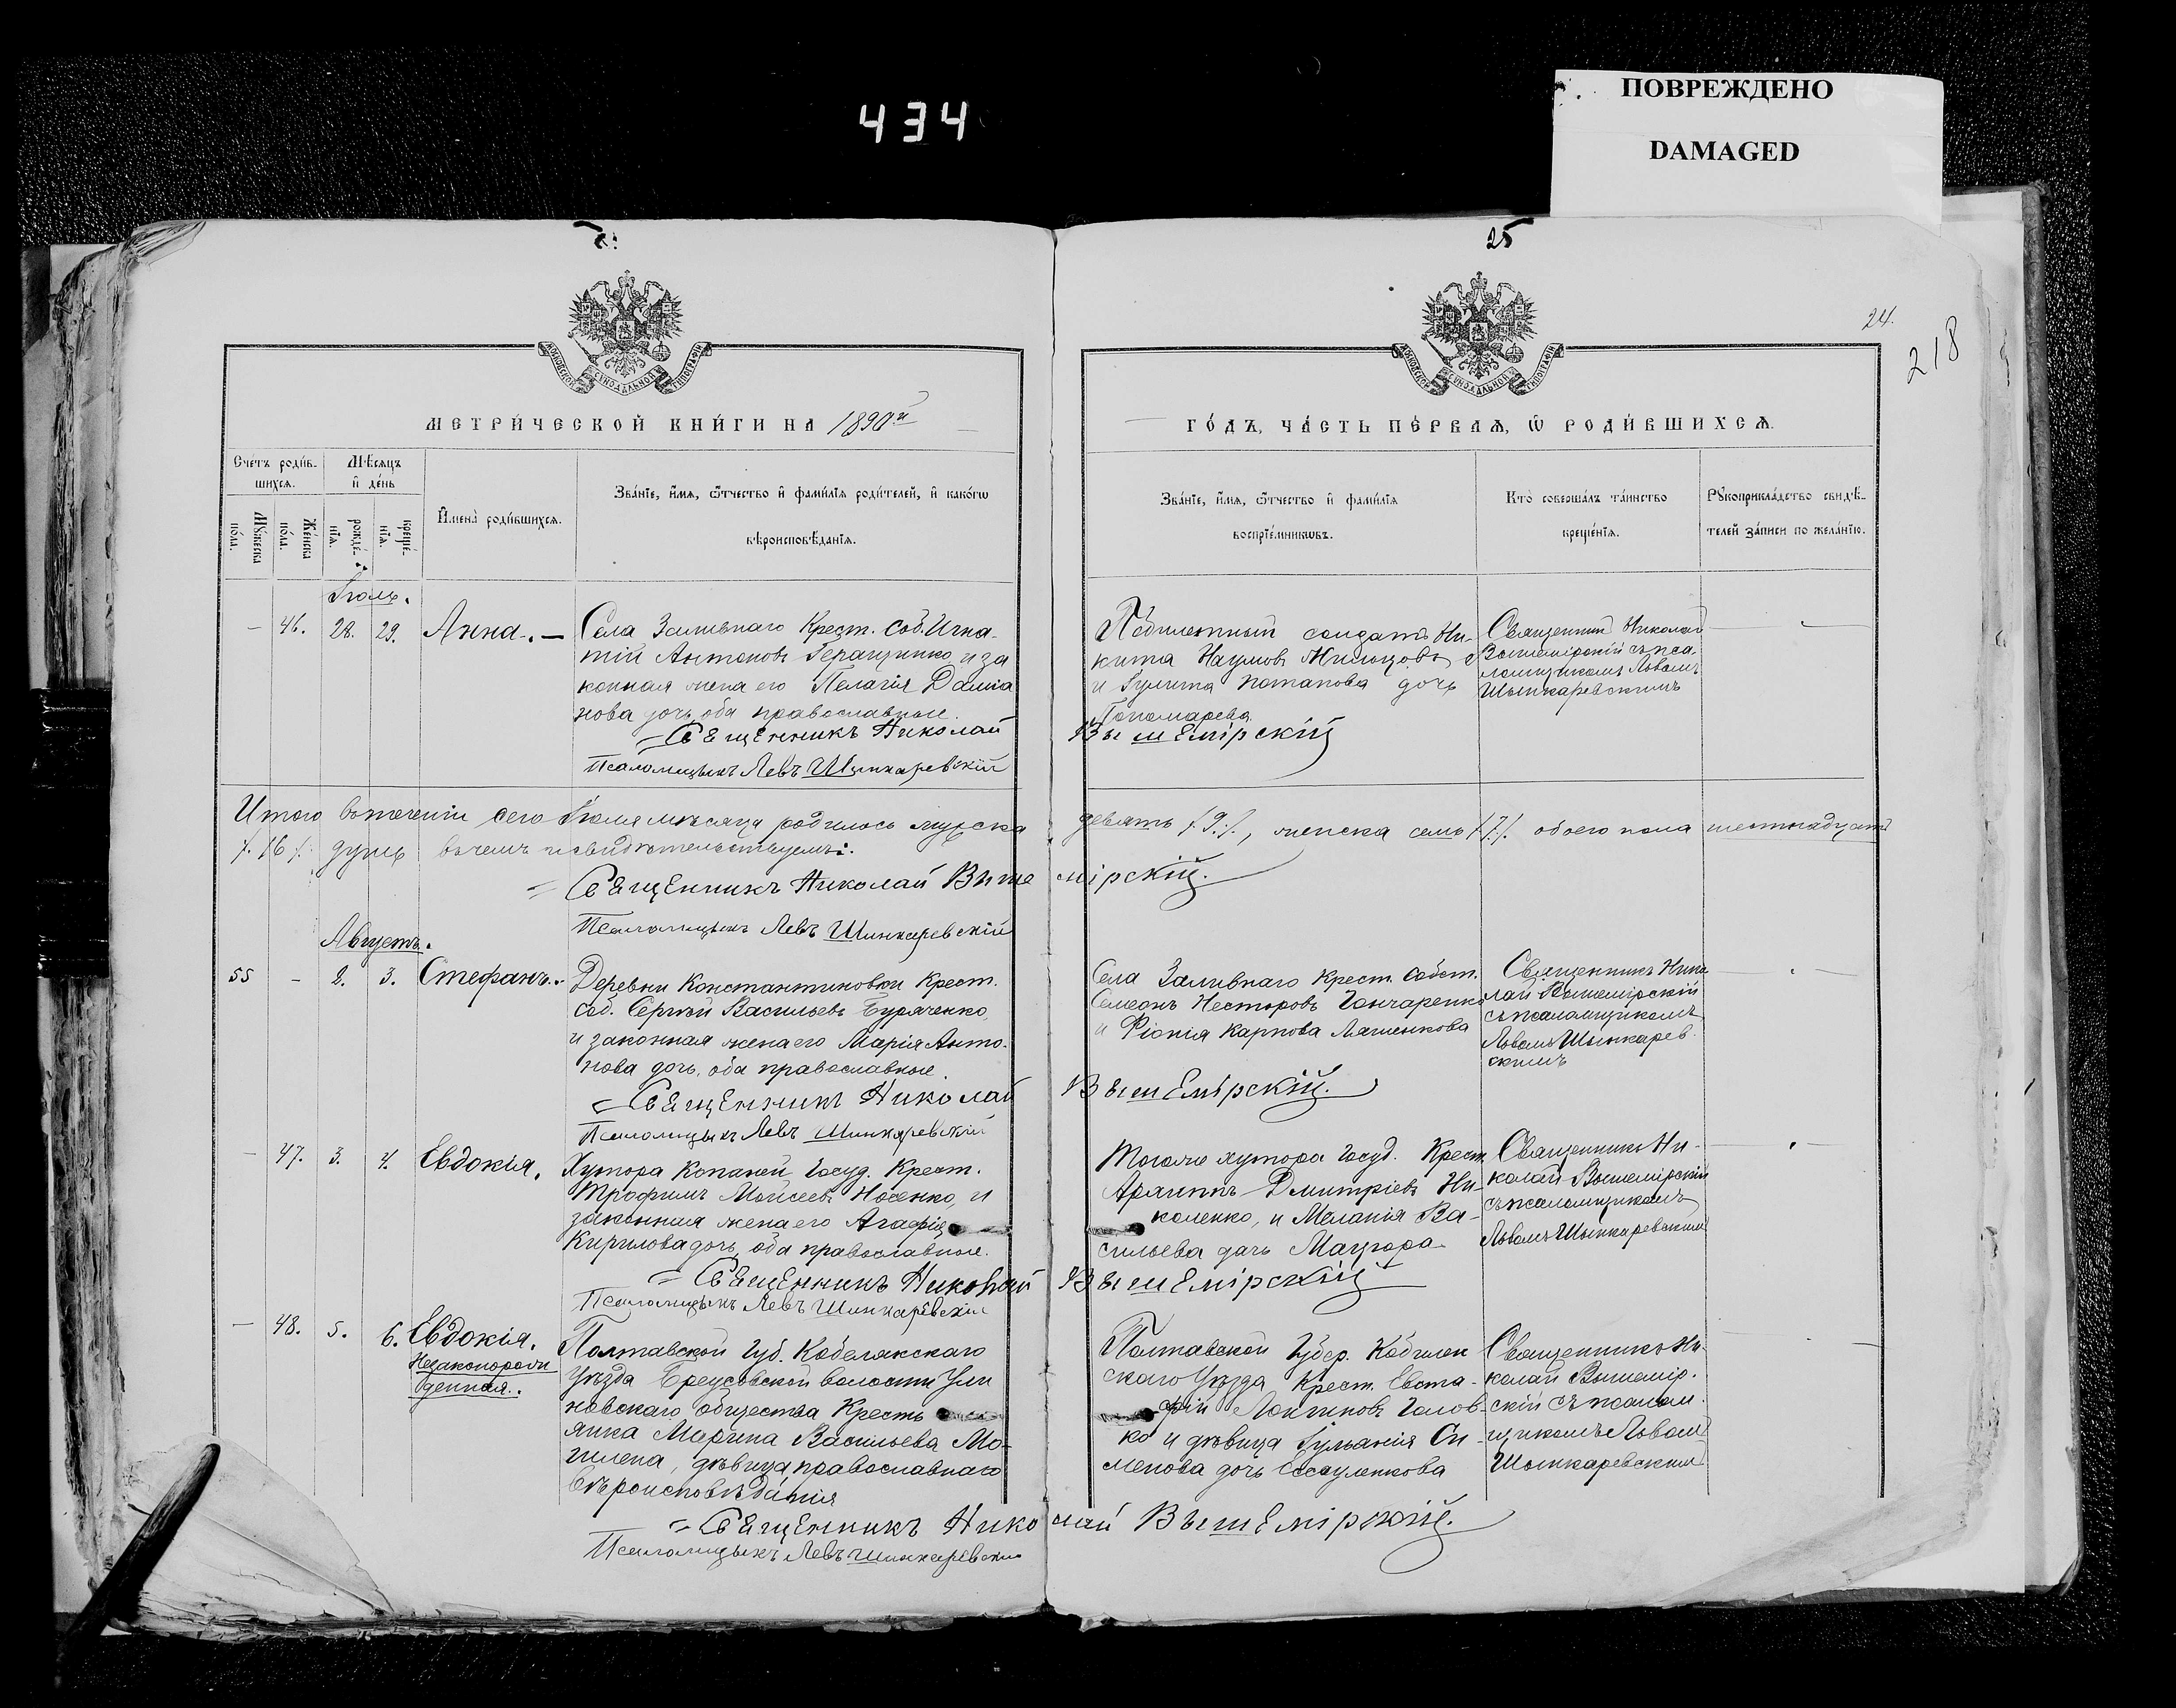 434
ПОВРЕЖДЕНО
DAMAGED
25
24.
218
МОСКОВСКОЙ СУНОДАЛЬНОЙ ТИПОГРАФІИ
МОСКОВСКОЙ СУНОДАЛЬНОЙ ТИПОГРАФІИ
МЕТРИ́ЧЕСКОЙ КНИ́ГИ НА 1890й
ГО́ДЪ, ЧА́СТЬ ПЕ́РВАѦ, Ѡ РОДИ́ВШИХСѦ.
Сче́тъ роди́в-
шихсѧ.
Мѣ́сѧцъ
и҆ де́нь
Му́жеска
по́ла.
Же́нска
по́ла.
рожде́-
нїѧ.
креще́-
нїѧ.
И҆мена̀ роди́вшихсѧ.
Зва́нїе, и҆́мѧ, ѻ҆́тчество и҆ фами́лїѧ роди́телей, и҆ како́гѡ
вѣроисповѣ́данїѧ.
Зва́нїе, и҆́мѧ, ѻ҆́тчество и҆ фами́лїѧ
воспрїе́мникѡвъ.
Кто̀ соверша́лъ та́инство
креще́нїѧ.
Рꙋкоприкла́дство свидѣ́-
телей за́писи по жела́нїю.
Іюль.
— 46. 28. 29. Анна. —
Села Заливнаго Крест. Соб. Игна-
тій Антоновъ Геращенко и за
конная жена его Пелагія Даміа
нова дочь, оба православные.
Священникъ Николай
Псаломщикъ Левъ Шинкаревскій
Безбилетный солдатъ Ни-
кита Наумовъ
и Іулита Потапова дочь
Пономарева.
Вышемірскій
Священникъ Николай
Вышемірскій съ пса-
ломщикомъ Львомъ
Шынкаревскимъ
Итого въ теченіи сего Іюля мѣсяца родилось мужска девять /.9./, женска семь /.7./. обоего пола шестнадцать
/.16./. душъ въ чемъ и свидѣтельствуемъ:
Священникъ Николай Вышемірскій.
Псаломщикъ Левъ Шинкаревскій
Августъ.
55 — 2. 3. Стефанъ.
Деревни Константиновки Крест.
Соб. Сергѣй Васильевъ Буряченко,
и законная жена его Марія Анто-
нова дочь, оба православные.
Священникъ Николай
Псаломщикъ Левъ Шинкаревскій
Села Заливнаго Крест. Собст.
Симеонъ Несторовъ Гончаренко
и Карпова Ляшенкова
Вышемірскій.
Священникъ Нико
лай Вышемірскій
съ псаломщикомъ
Львомъ Шынкарев-
скимъ
— 47. 3. 4. Евдокія.
Хутора Копаней Госуд. Крест.
Трофимъ Мойсеевъ Носенко, и
законная жена его Агафія
Кирилова дочь, оба православные.
Священникъ Николай
Псаломщикъ Левъ Шинкаревскій
Тогоже хутора Госуд. Крест.
Архиппъ Дмитріевъ Ни-
коленко, и Меланія Ва-
сильева дочь
Вышемірскій
Священникъ Ни-
колай Вышемірскій
съ псаломщикомъ
Львомъ Шынкаревскимъ
— 48. 5. 6. Евдокія.
Незаконорожд
денная.
Полтавской Губ. Кобелякскаго
Уѣзда Бреусовской волости Ули
новскаго общества Кресть
янка Марина Васильева Мо-
гилена, дѣвица, православнаго
вѣроисповѣданія
Священникъ Николай Вышемірскій.
Псаломщикъ Левъ Шинкаревскій
Полтавской Губер. Кобеляк
скаго Уѣзда Крест. Евста-
фій Голов-
ко и дѣвица Іульянія Си-
менова дочь Ессауленкова
Священникъ Ни-
колай Вышемір-
скій съ псалом-
щикомъ Львомъ
Шынкаревскимъ